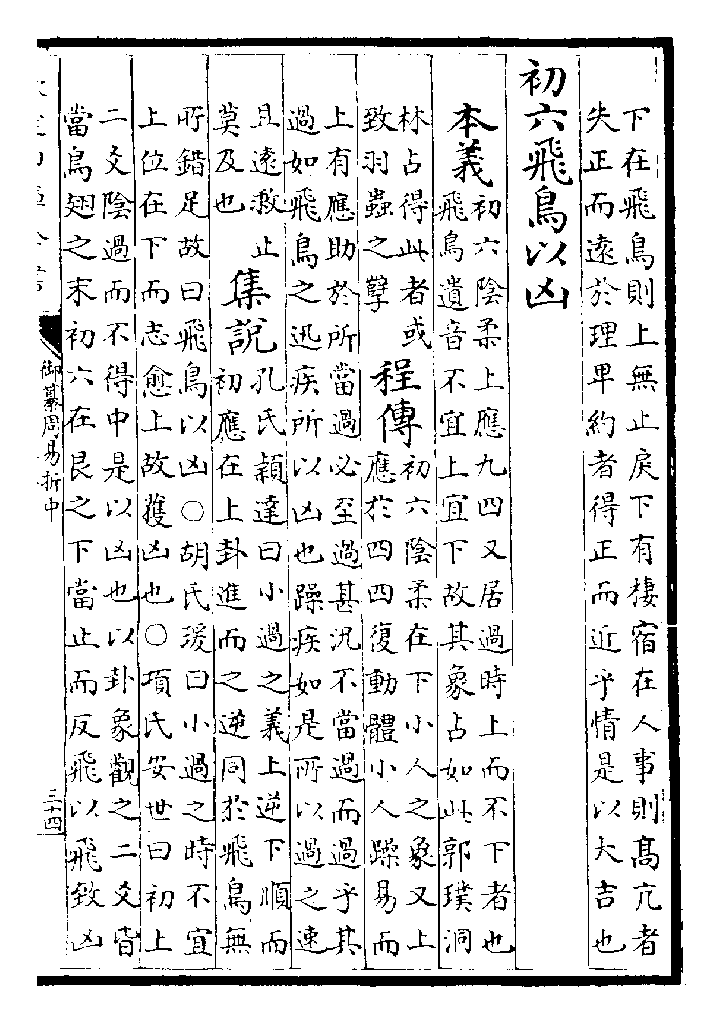 下在飛鳥則上無止戾下有棲宿在人事則髙亢者
失正而遠於理卑約者得正而近乎情是以大吉也
初六飛鳥以凶
本義
初六陰柔上應九四又居過時上而不下者也
飛鳥遺音不宜上宜下故其象占如此郭璞洞
林占得此者或
致羽蟲之孽
程傳
初六陰柔在下小人之象又上
應於四四復動體小人躁易而
上有應助於所當過必至過甚況不當過而過乎其
過如飛鳥之迅疾所以凶也躁疾如是所以過之速
且遠救止
莫及也
集說
孔氏穎達曰小過之義上逆下順而
初應在上卦進而之逆同於飛鳥無
所錯足故曰飛鳥以凶○胡氏瑗曰小過之時不宜
上位在下而志愈上故獲凶也○項氏安世曰初上
二爻陰過而不得中是以凶也以卦象觀之二爻皆
當鳥翅之末初六在艮之下當止而反飛以飛致凶
御纂周易折中
三十四